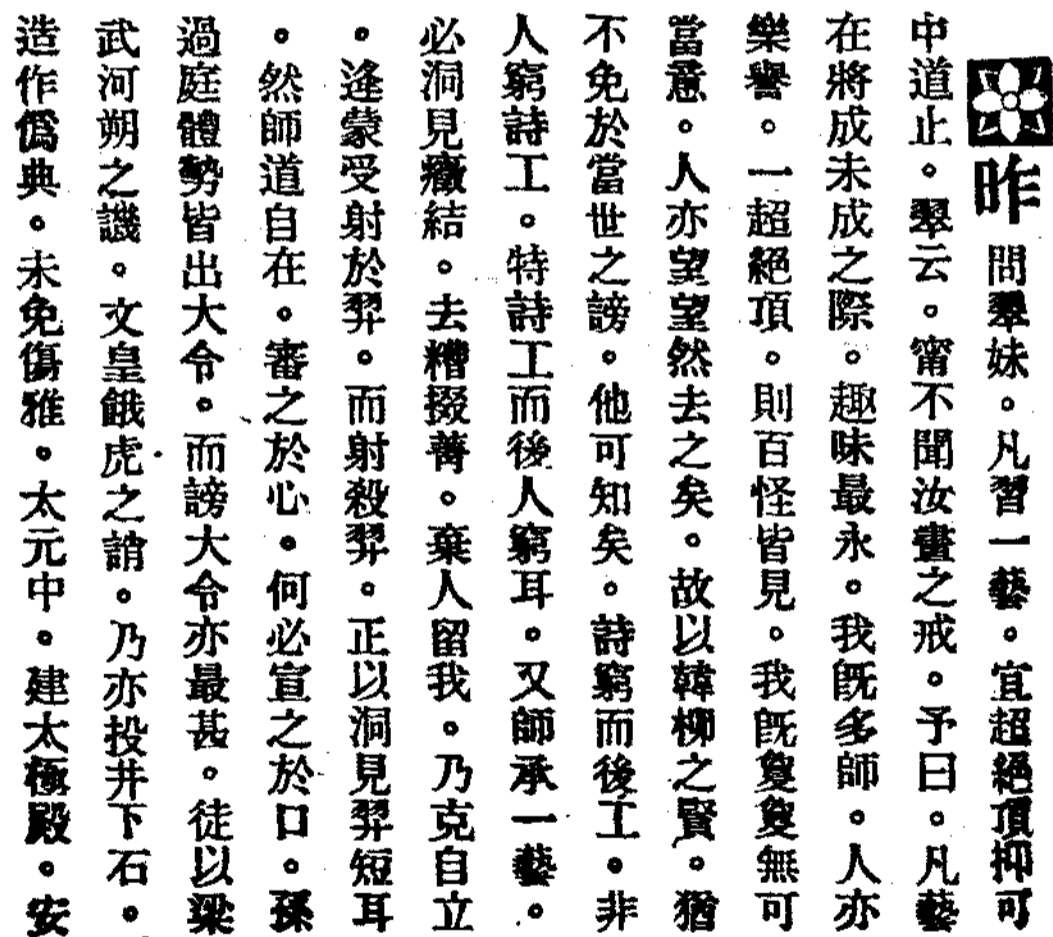 昨問翠妹。凡習一藝。宜超絕頂抑可
中道止。翠云。甯不聞汝畫之戒。予曰。凡藝
在將成未成之際。趣味最永。我既多師。人亦
樂譽。一超絕頂。則百怪皆見。我既敻敻無可
當意。人亦望望然去之矣。故以韓柳之賢。猶
不免於當世之謗。他可知矣。詩窮而後工。非
人窮詩工。特詩工而後人窮耳。又師承一藝。
必洞見癥結。去糟掇菁。棄人留我。乃克自立
。逄蒙受射於羿。而射殺羿。正以洞見羿短耳
。然師道自在。審之於心。何必宣之於口。孫
過庭體勢皆出大令。而謗大令亦最甚。徒以梁
武河朔之譏。文皇餓虎之誚。乃亦投井下石。
造作僞典。未免傷雅。太元中。建太極殿。安